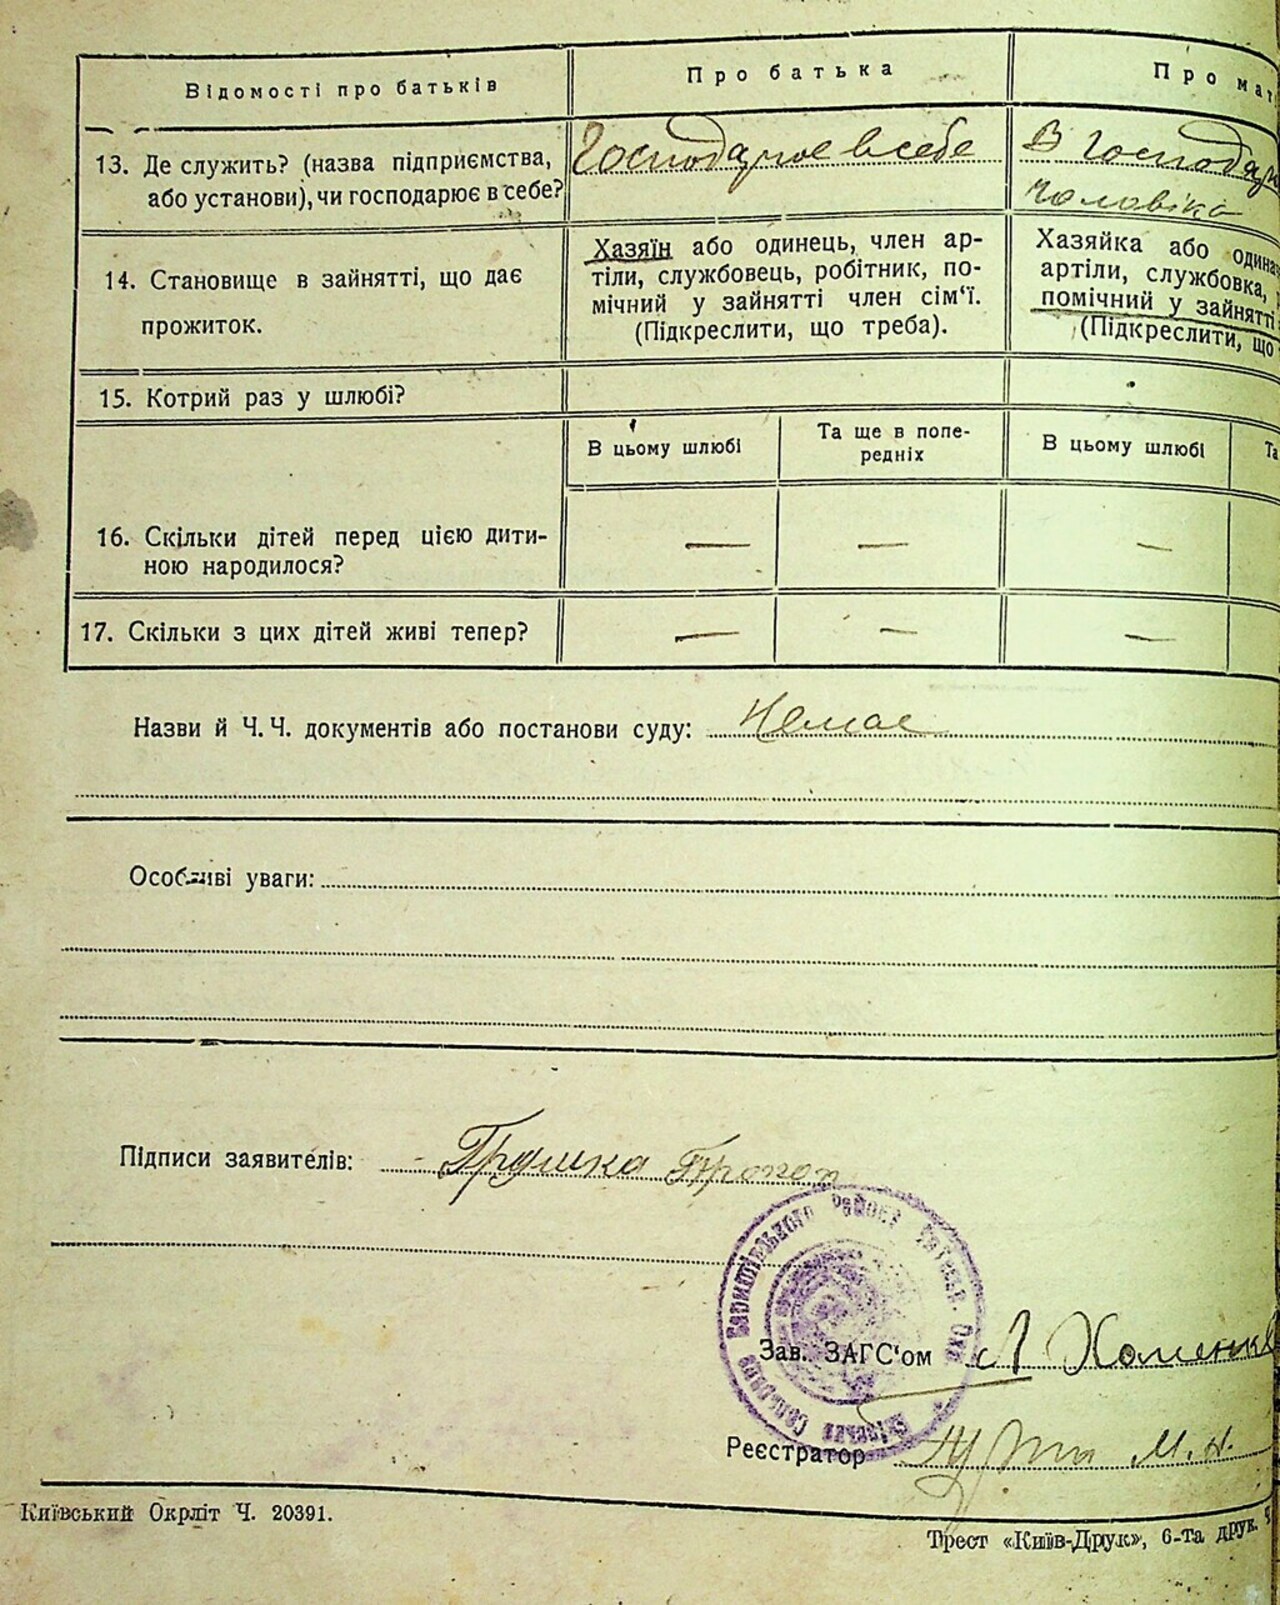 Відомості про батьків
Про батька
Про мат
13. Де служить? (назва підприємства,
або установи), чи господарює в себе?
Господарює в себе
В господар
чоловіка
14. Становище в зайнятті, що дає
прожиток.
Хазяїн або одинець, член ар-
тіли, службовець, робітник, по-
мічний у зайнятті член сім‘ї.
(Підкреслити, що треба).
Хазяйка або одина
артіли, службовка,
помічний у зайнятті
(Підкреслити, що
15. Котрий раз у шлюбі?
В цьому шлюбі
Та ще в попе-
редніх
В цьому шлюбі
Та
16. Скільки дітей перед цією дити-
ною народилося?
— — —
17. Скільки з цих дітей живі тепер?
— — —
Назви й Ч. Ч. документів або постанови суду: Немає
Особливі уваги:
Підписи заявителів: Грушка Прокоп
Баришівського Району
Зав. ЗАГС‘ом Л Хоменко
Реєстратор М. Н.
Київський Окрліт Ч. 20391.
Трест «Київ-Друк», 6-та друк.